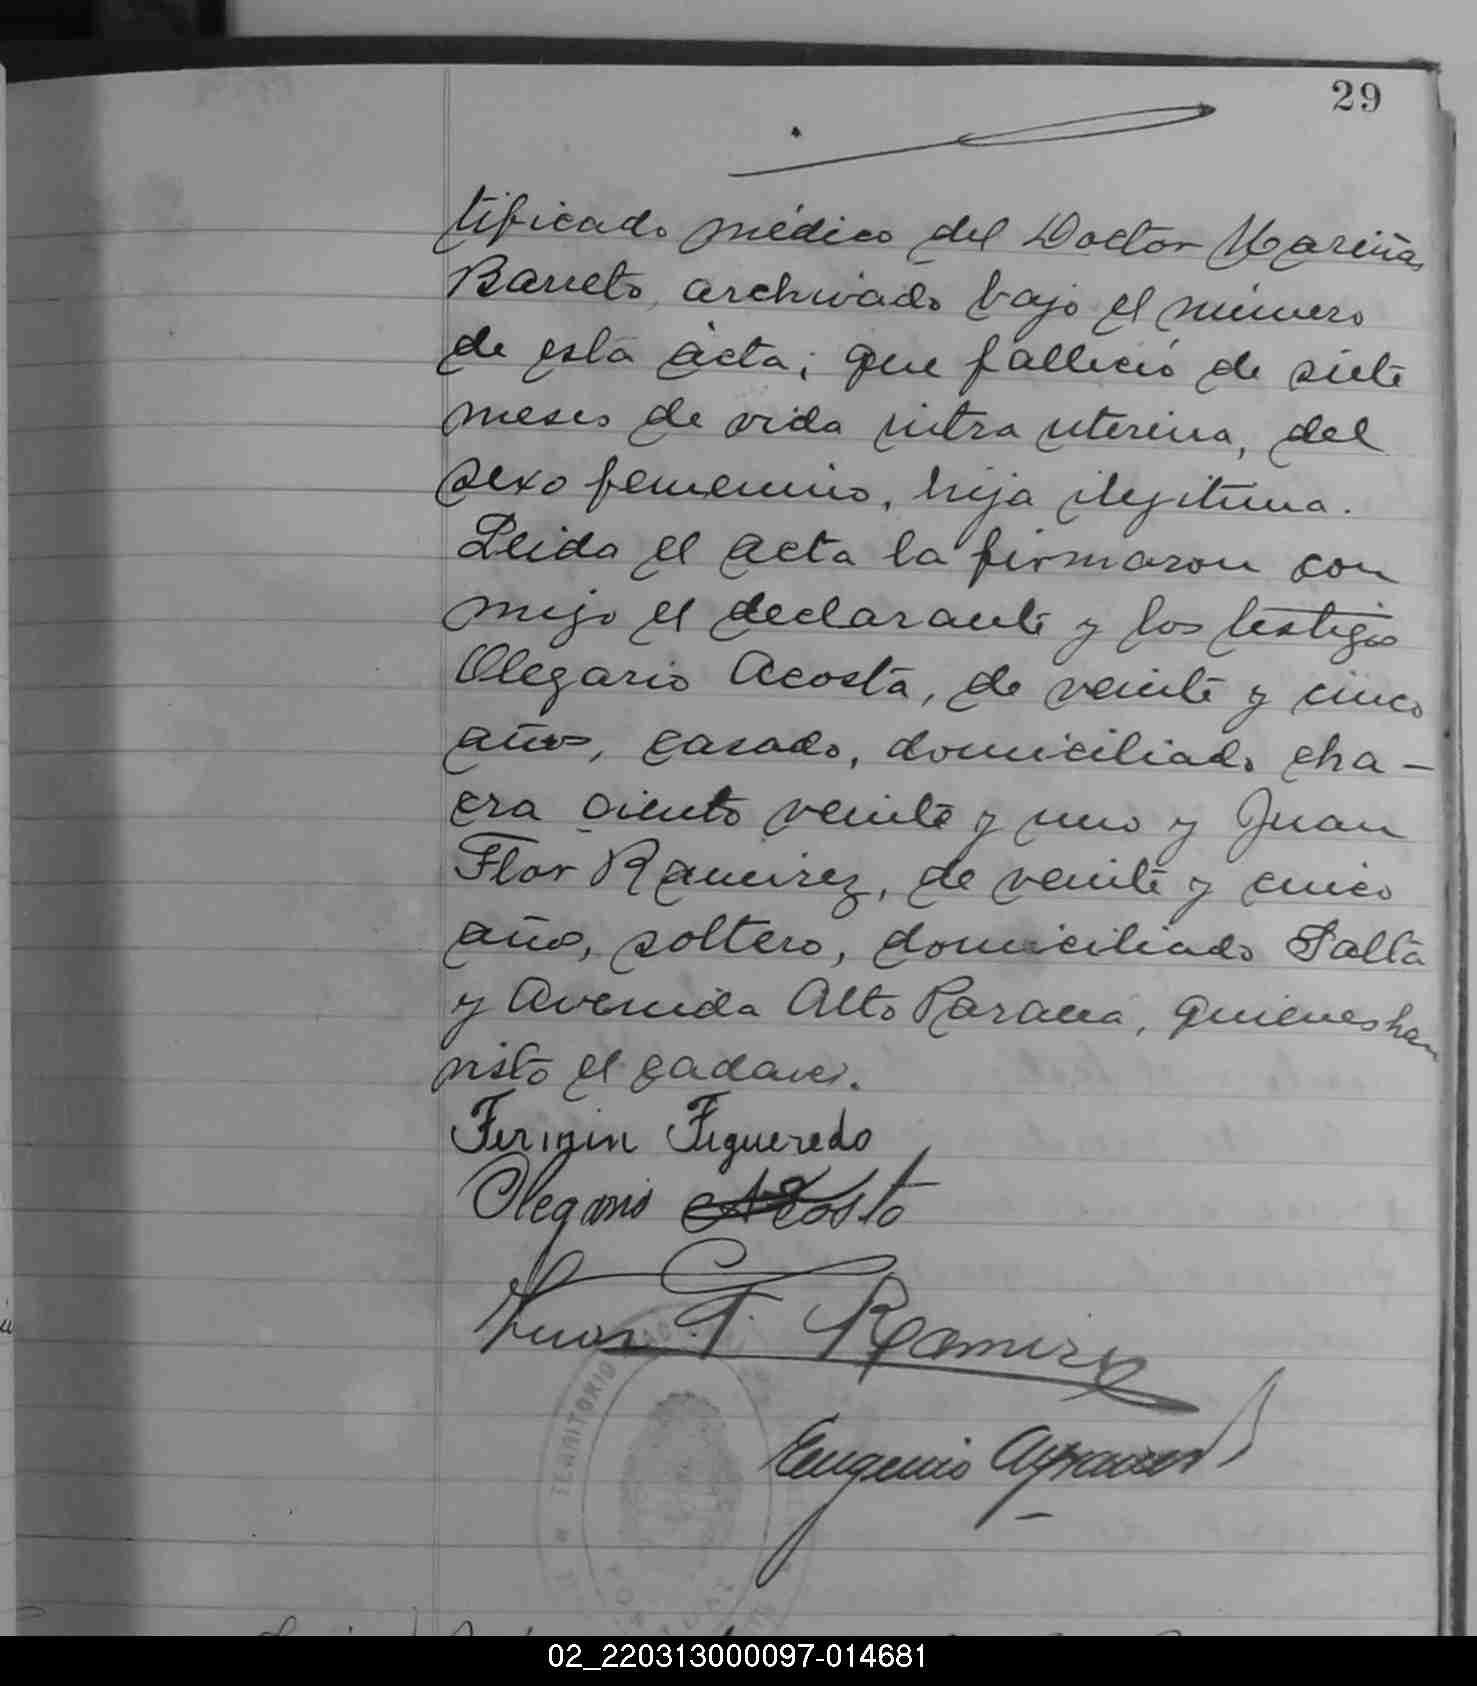 29
tificado médico del Doctor Mariñas
Barreto, archivado bajo el número
de esta acta; que falleció de siete
meses de vida intra uterina, del
sexo femenino, hija ilegitima.
Leida el acta la firmaron con
migo el declarante y los testigos
Olegario Acosta, de veinte y cinco
años, casado, domiciliado cha-
cra ciento veinte y uno y Juan
Flor Ramirez, de veinte y cinco
años, soltero, domiciliado Salta
y Avenida Alto Paraná, quienes han
visto el cadaver.
Fermin Figueredo
Olegario Acosta
Juan F. Ramirez
Eugenio
TERRITORIO
02_220313000097-014681